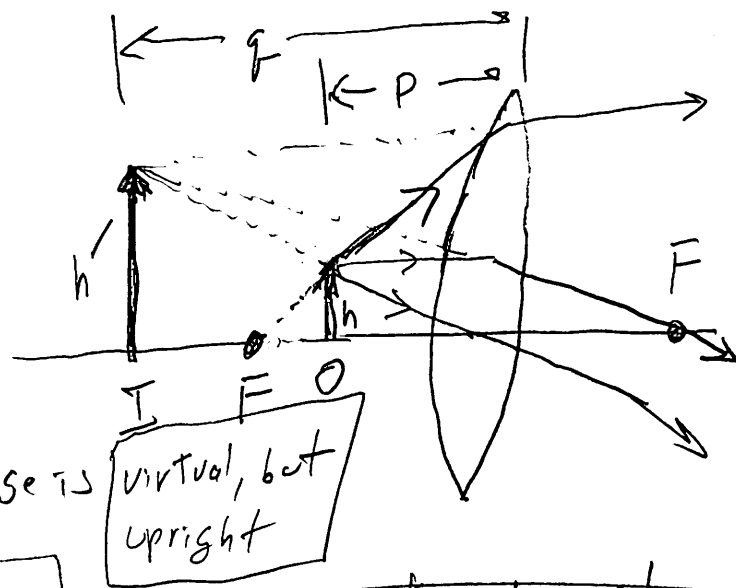 q
P
h'
h
F
I F O
se is virtual, but
upright